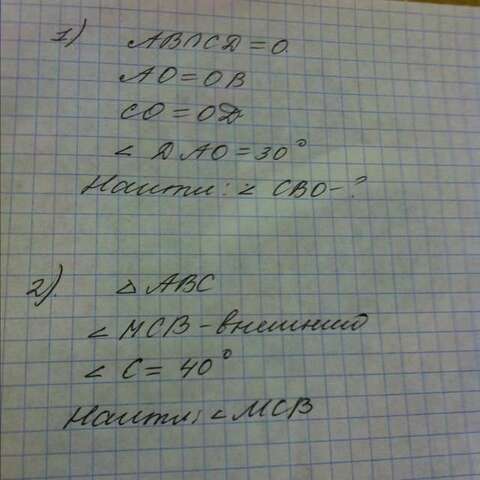 1) AB∩CD=O.
AO=OB
CO=OD
∠ DAO=30°
Найти: ∠ CBO-?
2). △ABC
∠MCB-внешний
∠ C= 40°
Найти: ∠MCB